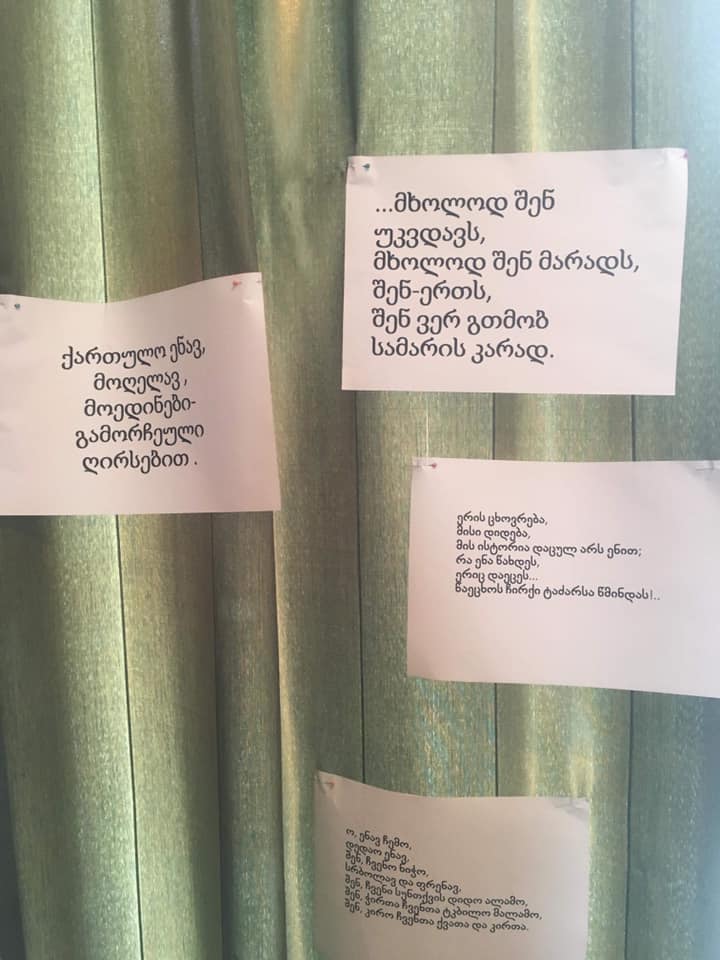 ...მხოლოდ შენ
უკვდავს,
მხოლოდ შენ მარადს,
შენ-ერთს,
შენ ვერ გთმობ
სამარის კარად.
ქართულო ენავ,
მოღელავ,
მოედინები-
გამორჩეული
ღირსებით.
ერის ცხოვრება,
მისი დიდება,
მის ისტორია დაცულ არს ენით;
რა ენა წახდეს,
ერიც დაეცეს...
წაეცხოს ჩირქი ტაძარსა წმინდას!..
ო, ენავ ჩემო,
დედაო ენავ,
შენ, ჩვენო ნიჭო,
სრბოლავ და ფრენავ,
შენ, ჩვენი სუნთქვის დიდო ალამო,
შენ, ჭირთა ჩვენთა ტკბილო მალამო,
შენ, კირო ჩვენთა ქვათა და კირთა.